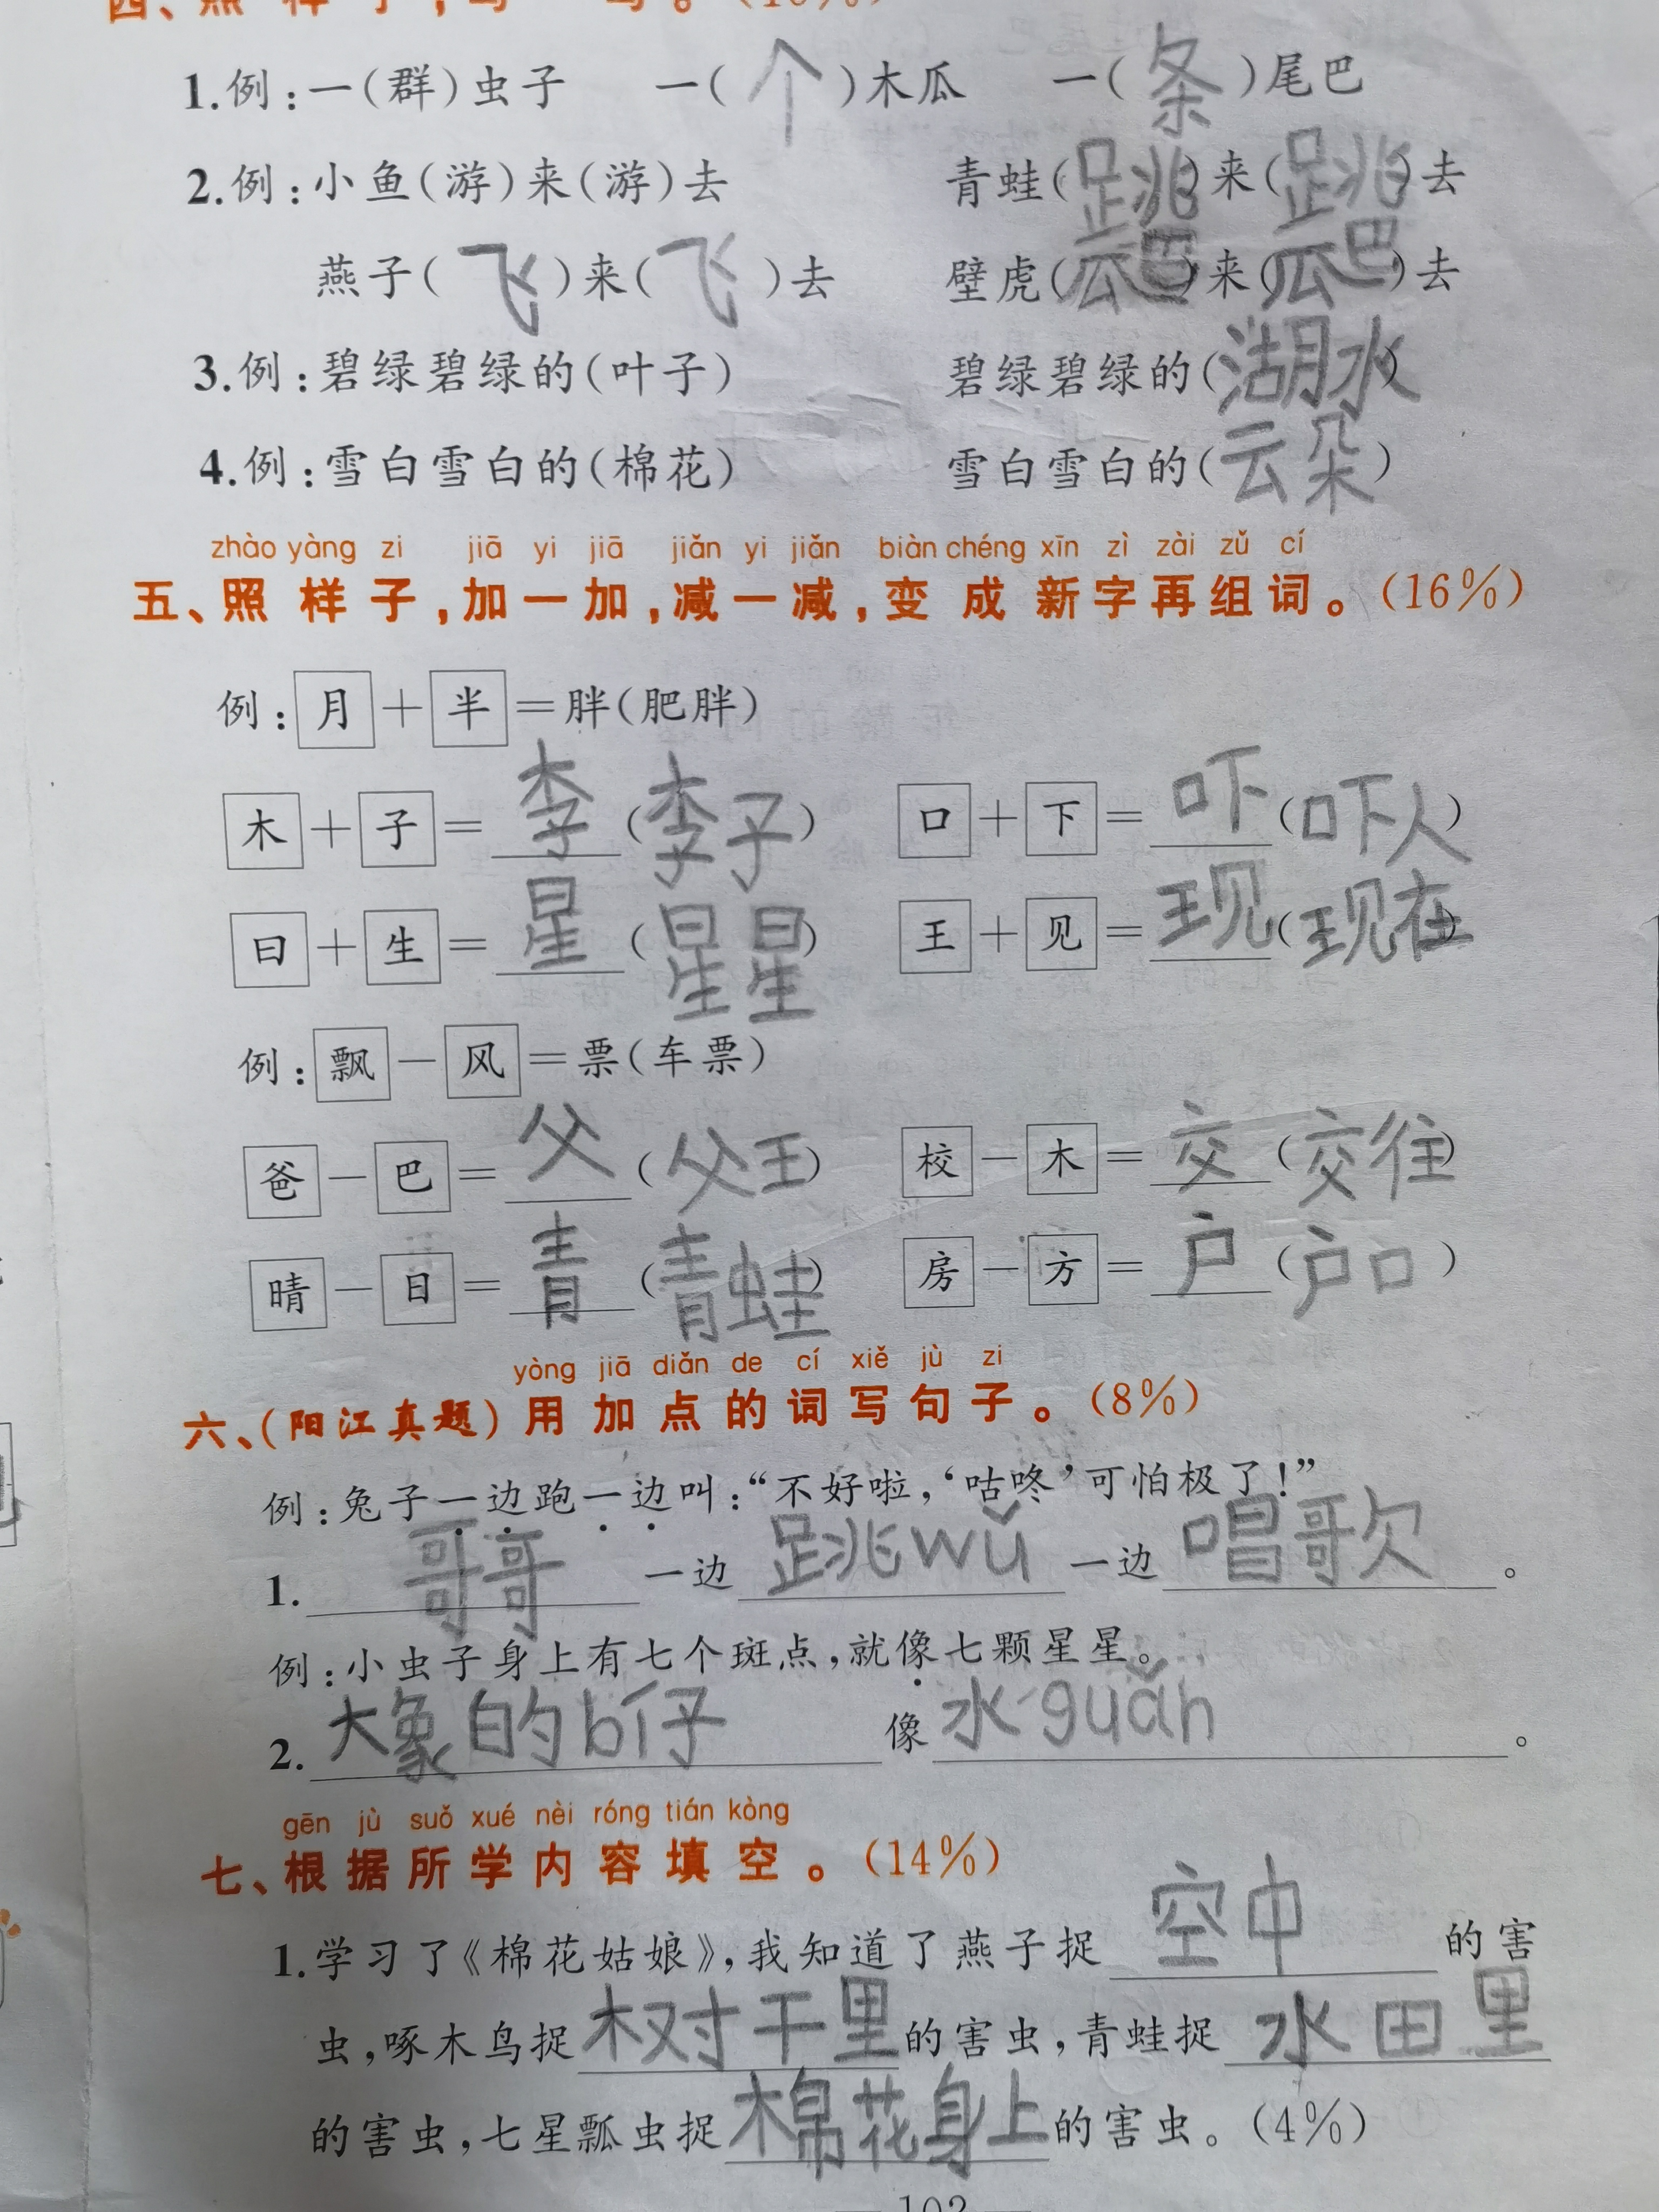 四、照样子,写一写。(10%)
1.例:一(群)虫子 一(个)木瓜 一(条)尾巴
2.例:小鱼(游)来(游)去 青蛙(跳)来(跳)去
燕子(飞)来(飞)去 壁虎(爬)来(爬)去
3.例:碧绿碧绿的(叶子) 碧绿碧绿的(湖水)
4.例:雪白雪白的(棉花) 雪白雪白的(云朵)
zhào yàng zi jiā yi jiā jiǎn yi jiǎn biàn chéng xīn zì zài zǔ cí
五、照样子,加一加,减一减,变成新字再组词。(16%)
例:月+半=胖(肥胖)
木+子=李(李子) 口+下=吓(吓人)
日+生=星(星星) 王+见=现(现在)
例:飘-风=票(车票)
爸-巴=父(父王) 校-木=交(交往)
晴-日=青(青蛙) 房-方=户(户口)
yòng jiā diǎn de cí xiě jù zi
六、(阳江真题)用加点的词写句子。(8%)
例:兔子一边跑一边叫:“不好啦,‘咕咚’可怕极了!”
1.哥哥一边跳wǔ一边唱歌。
例:小虫子身上有七个斑点,就像七颗星星。
2.大象的bí仔像水guǎn。
gēn jù suǒ xué nèi róng tián kòng
七、根据所学内容填空。(14%)
1.学习了《棉花姑娘》,我知道了燕子捉空中的害
虫,啄木鸟捉树干里的害虫,青蛙捉水田里
的害虫,七星瓢虫捉棉花身上的害虫。(4%)
102